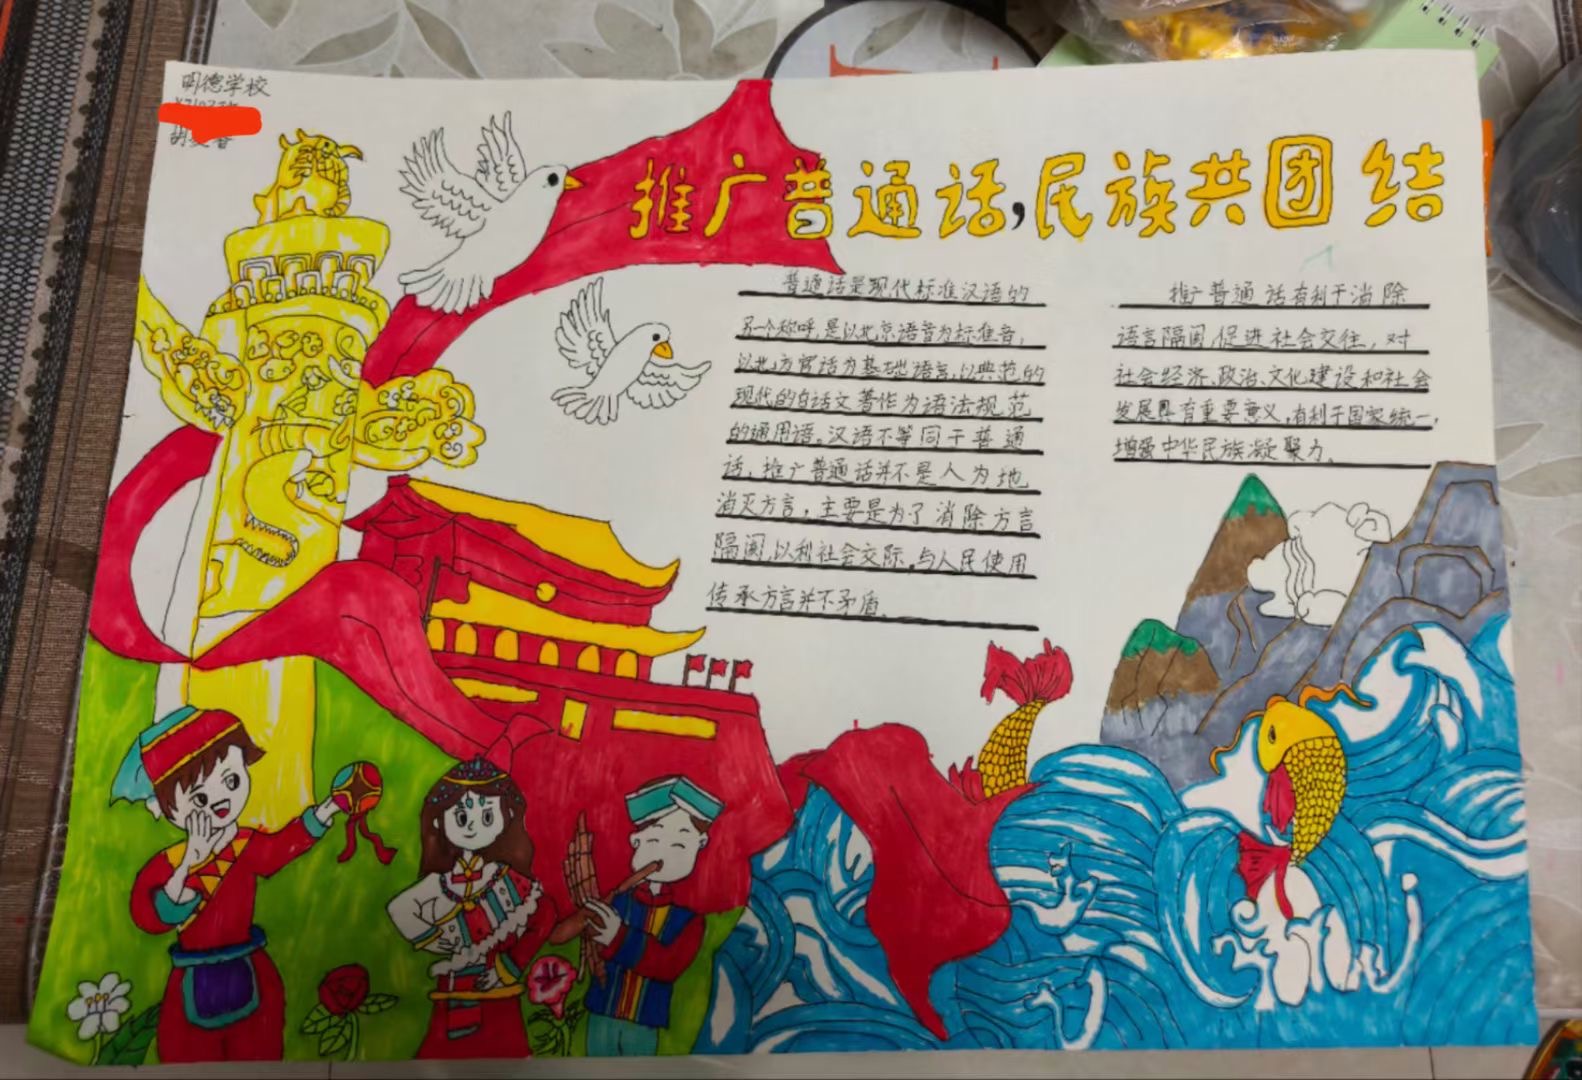 明德学校
推广普通话,民族共团结
普通话是现代标准汉语的
另一个称呼,是以北京语音为标准音,
以北方官话为基础语言,以典范的
现代的白话文著作为语法规范
的通用语。汉语不等同于普通
话,推广普通话并不是人为地
消灭方言,主要是为了消除方言
隔阂,以利社会交际,与人民使用
传承方言并不矛盾。
推广普通话有利于消除
语言隔阂,促进社会交往,对
社会经济、政治、文化建设和社会
发展具有重要意义,有利于国家统一,
增强中华民族凝聚力。